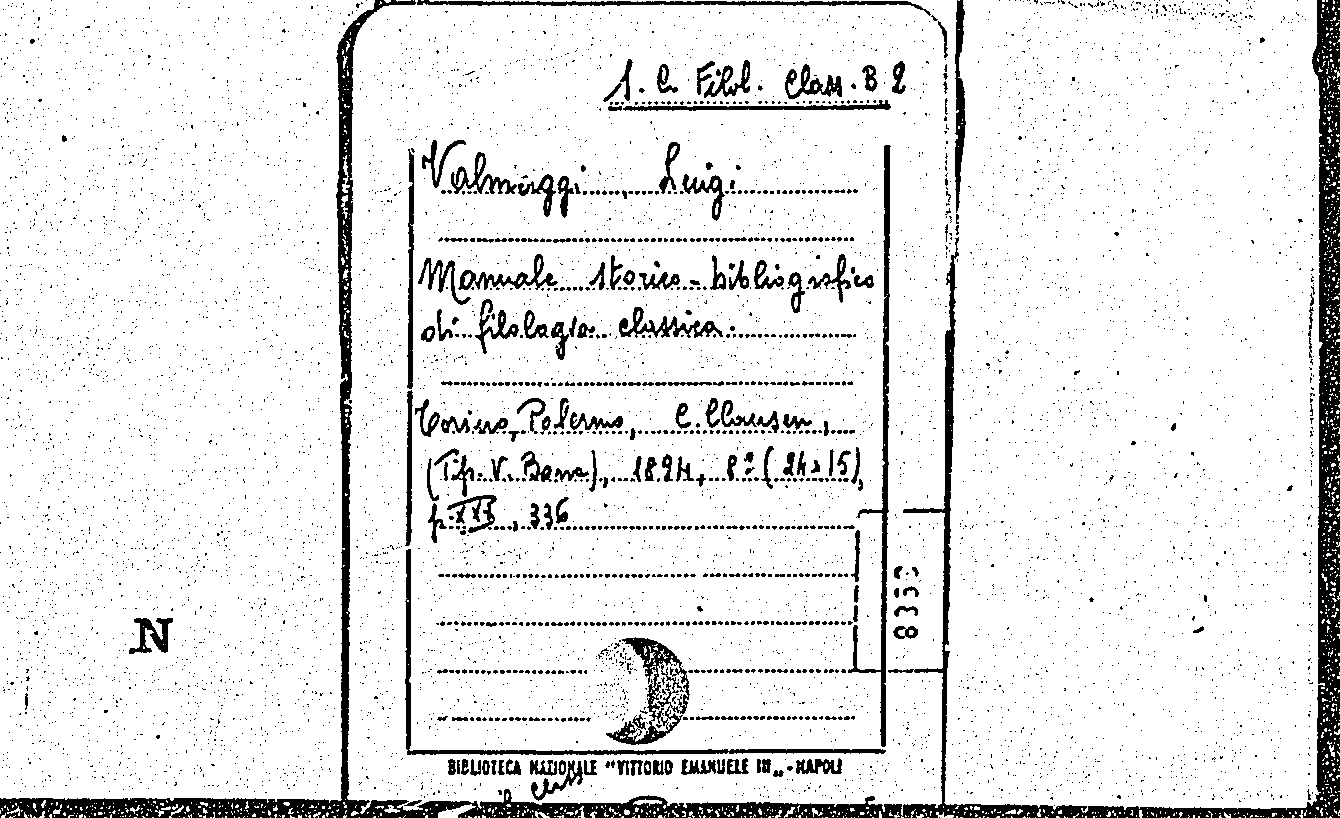 S. C. Filol. Class. B 2
Valmaggi, Luigi
Manuale storico-bibliografico
di filologia classica.
Torino, Palermo, C. Clausen,
(Tip. V. Bona), 1894, 8º (24x15),
p. , 336
8333
N
BIBLIOTECA NAZIONALE "VITTORIO EMANUELE III„ - NAPOLI
class